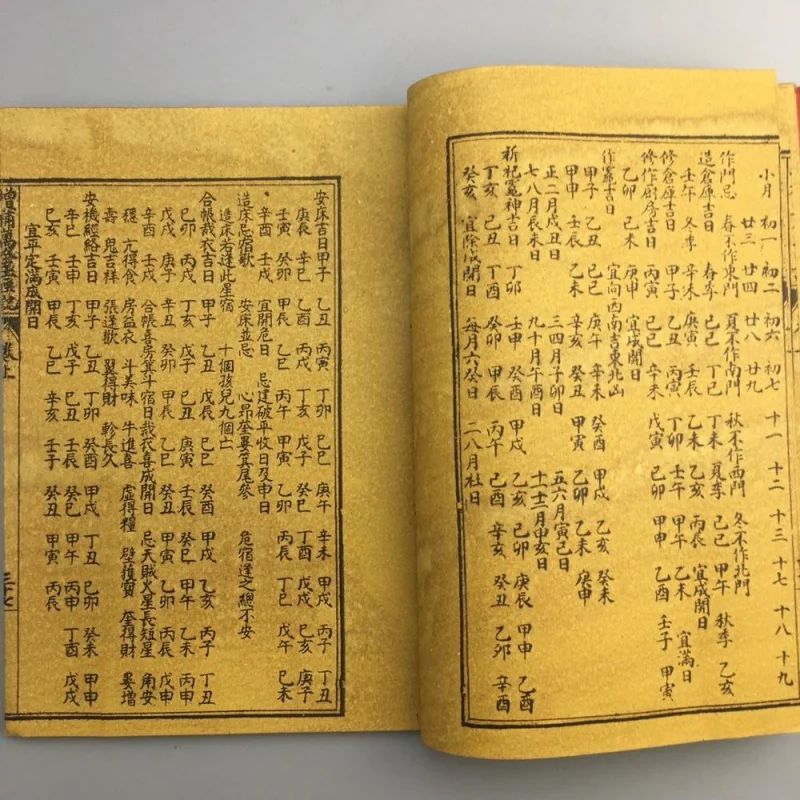 小月 初一 初二 初六 初七 十一 十二 十三 十七 十八 十九
廿三 廿四 廿八 廿九
作門忌 春不作東門 夏不作南門 秋不作西門 冬不作北門
造倉庫吉日 春季 己巳 丁巳 丁未 夏季 己巳 甲午 秋季 乙亥
壬午 冬季 辛未 庚寅 壬辰 乙未 乙亥 丙辰 宜成開日
修倉庫吉日 甲子 乙丑 丙寅 丁卯 壬午 甲午 乙未 宜滿日
修作厨房吉日 丙寅 己巳 辛未 戊寅 己卯 甲申 乙酉 壬子 甲寅
乙卯 己未 庚申 宜成開日
作竈吉日 宜向西南吉東北凶
甲子 乙丑 己巳 庚午 辛未 癸酉 甲戌 乙亥 癸未
甲申 壬辰 乙未 辛亥 癸丑 甲寅 乙卯 己未 庚申
正二月戌丑日 三四月子卯日 五六月寅巳日
七八月辰未日 九十月午酉日 十一十二月申亥日
祈祀竈神吉日 丁卯 壬申 癸酉 甲戌 乙亥 己卯 庚辰 甲申 乙酉
丁亥 己丑 丁酉 癸卯 甲辰 丙午 己酉 辛亥 癸丑 乙卯 辛酉
癸亥 宜除成開日 每月六癸日 二八月社日
安床吉日 甲子 乙丑 丙寅 丁卯 己巳 庚午 辛未 甲戌 丙子 丁丑
庚辰 辛巳 乙酉 丙戌 丁亥 戊子 癸巳 丁酉 戊戌 己亥 庚子
壬寅 癸卯 甲辰 乙巳 丙午 甲寅 乙卯 丙辰 丁巳 戊午 己未
辛酉 壬戌 宜開危日 忌建破平收日及申日
造床忌宿歌 安床並忌 心昴奎婁箕尾參 危宿逢之總不安
造床若逢此星宿 十個孩兒九個亡
合帳裁衣吉日 甲子 乙丑 戊辰 己巳 癸酉 甲戌 乙亥 丙子 丁丑
己卯 丙戌 丁亥 戊子 己丑 庚寅 壬辰 癸巳 甲午 乙未 丙申
戊戌 庚子 辛丑 癸卯 甲辰 乙巳 癸丑 甲寅 乙卯 丙辰 戊申
辛酉 壬戌 合帳喜房箕斗宿日裁衣喜成開日 忌天賊火星長短星 角安
穩 亢得食 房益衣 斗美味 牛進喜 虛得糧 壁獲寶 奎得財 婁增
壽 鬼吉祥 張逢歡 翼得財 軫長久
安機經絡吉日 乙丑 丁卯 癸酉 甲戌 丁丑 己卯 癸未 甲申
辛巳 壬申 丁亥 戊子 己丑 壬辰 癸巳 甲午 丙申 丁酉 戊戌
己亥 壬寅 甲辰 乙巳 辛亥 壬子 癸丑 甲寅 丙辰
宜平定滿成開日
增補萬全玉匣記 卷上 三十七